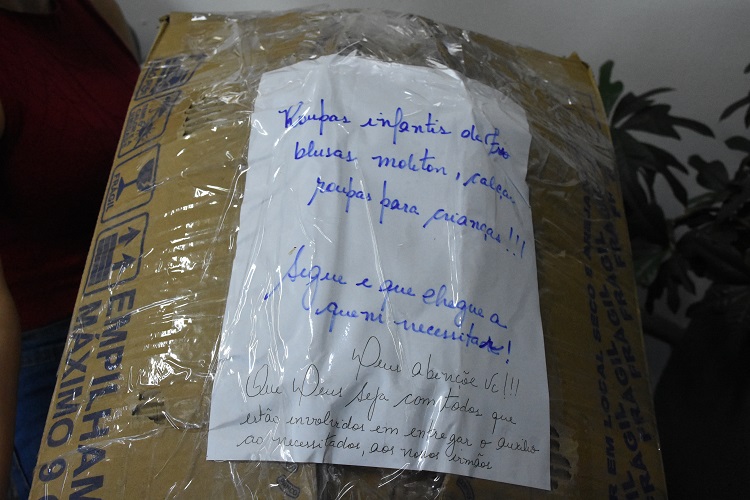 Roupas infantis de frio
blusas moleton, calças
roupas para crianças!!!
Segue e que chegue a
quem necessitar!
Deus abençõe vc!!!
Que Deus seja com todos que
estão involvidos em entregar o auxilio
ao necessitados, aos nossos irmãos
FRAGIL
EMPILHAM
MAXIMO 9
EM LOCAL SECO E
FRAGIL FRAGIL
FRAGIL FRAGIL